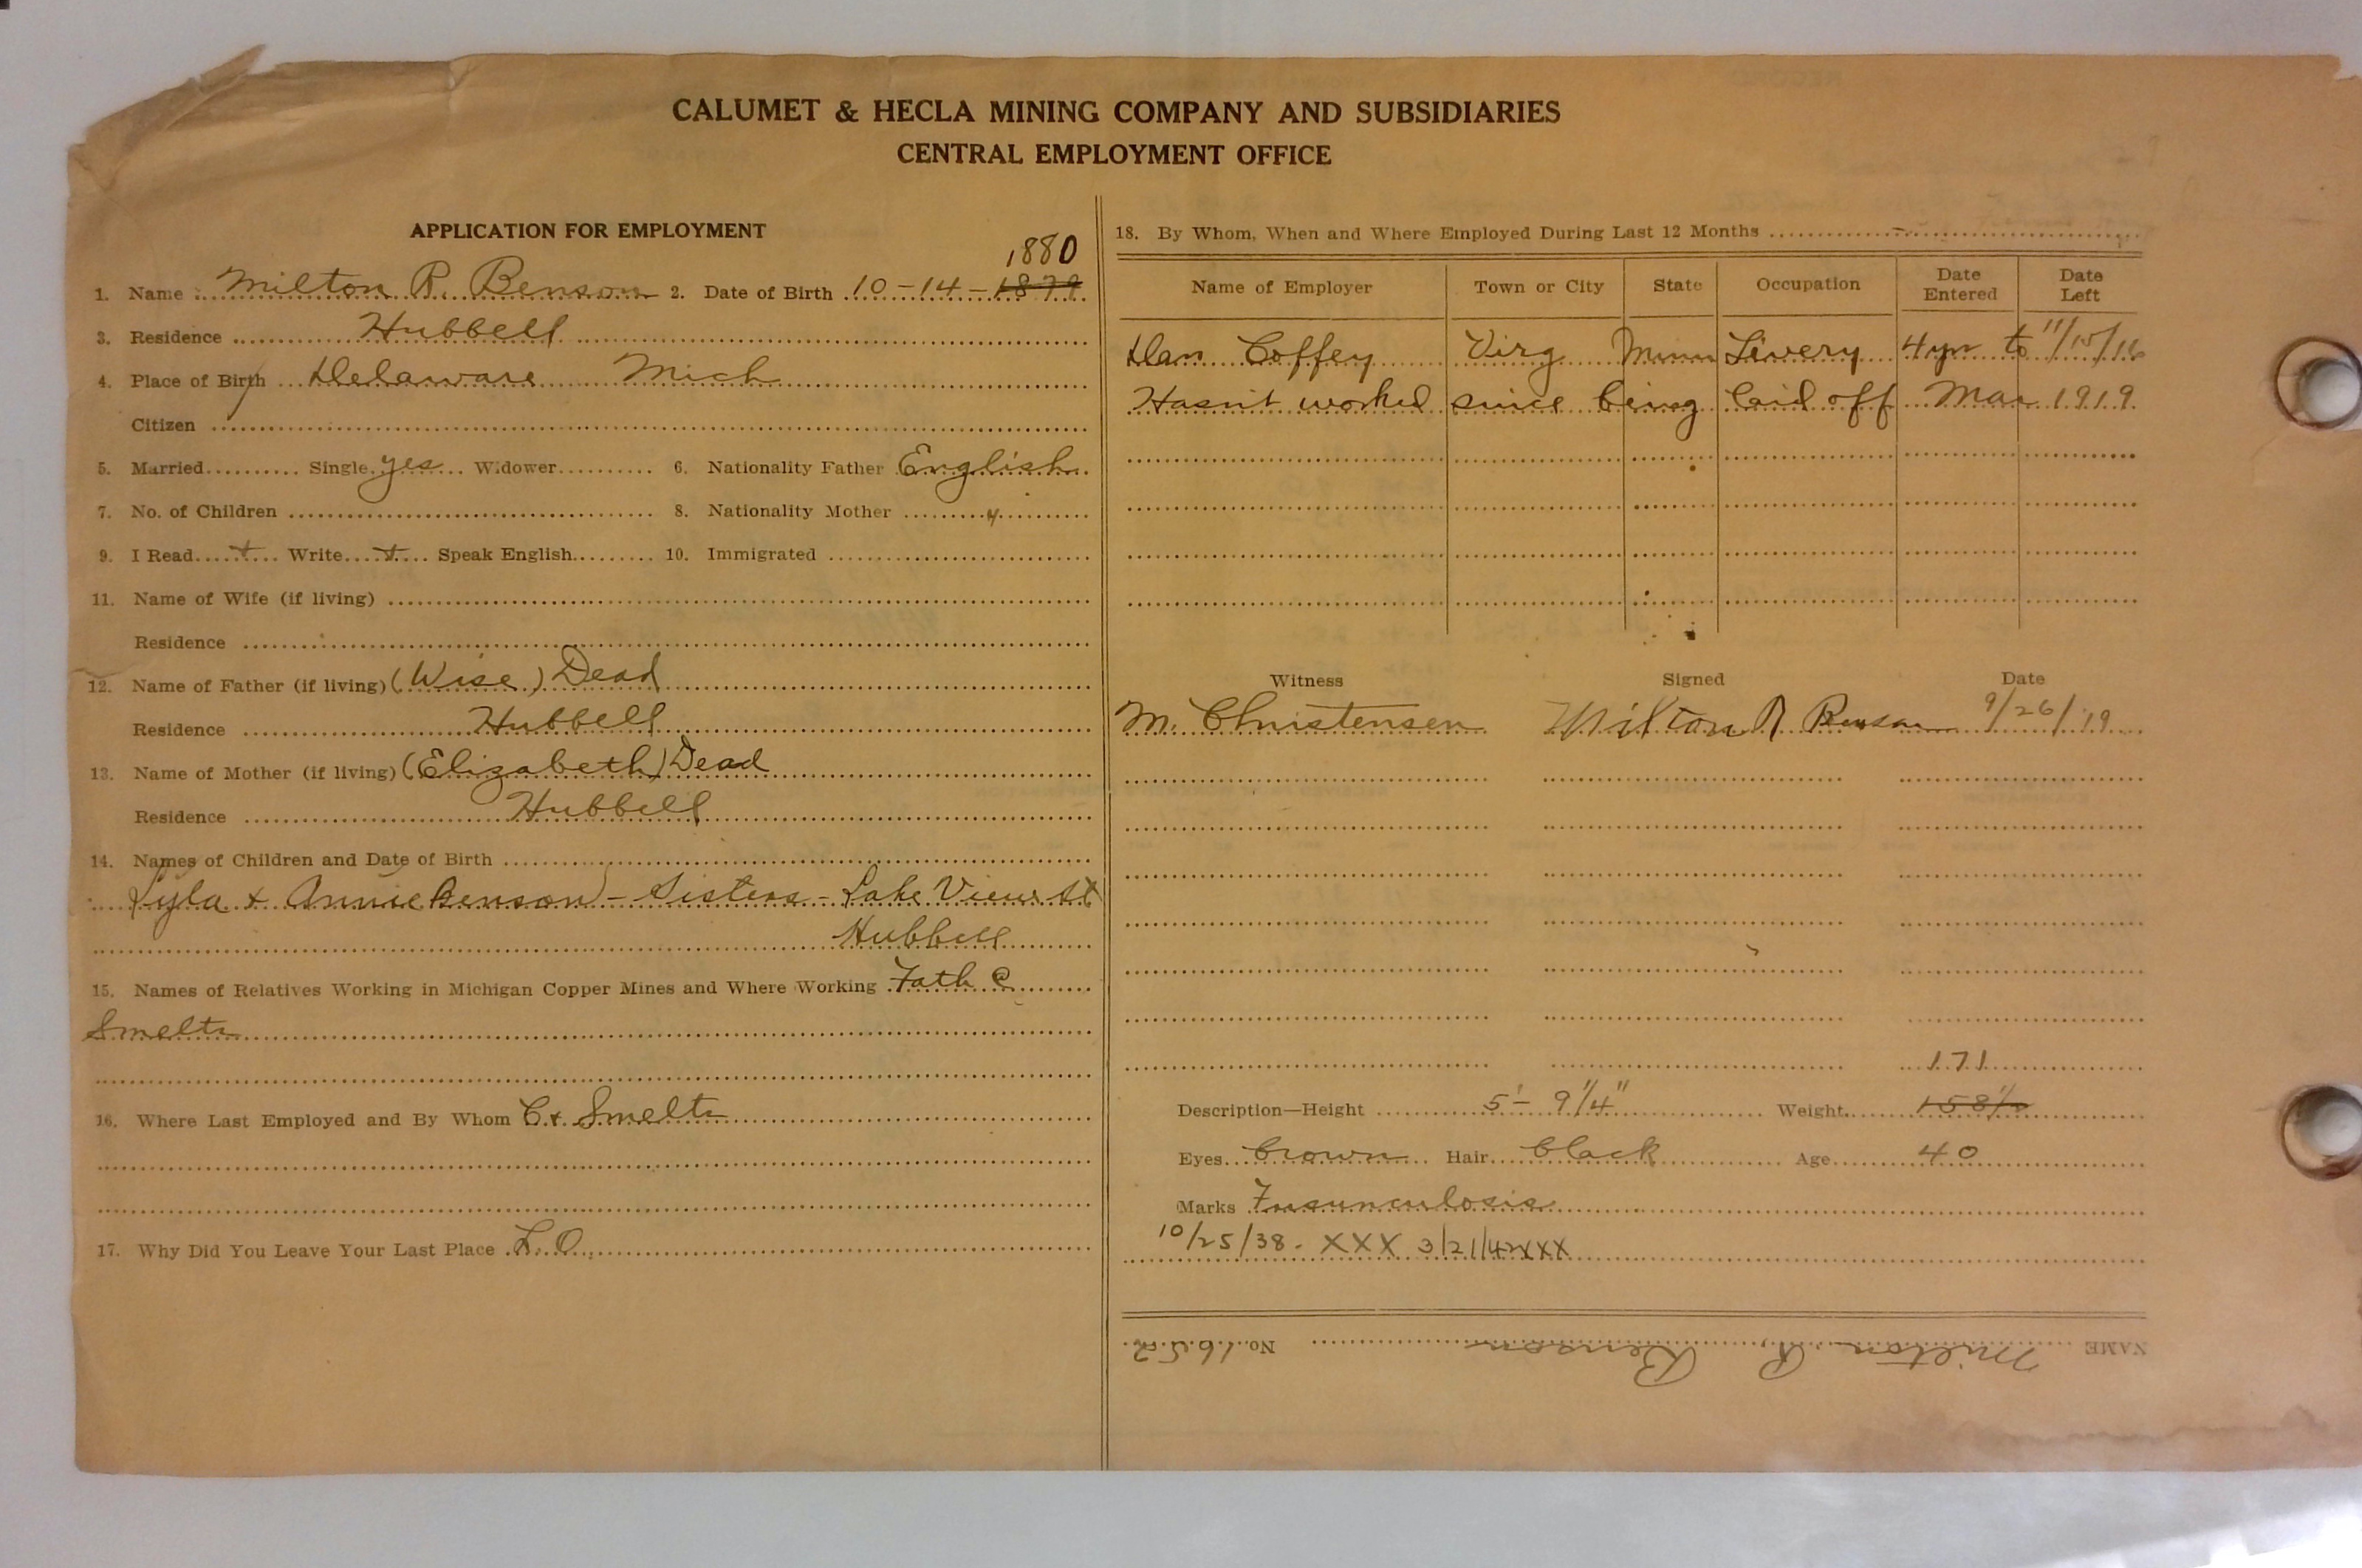 CALUMET & HECLA MINING COMPANY AND SUBSIDIARIES
CENTRAL EMPLOYMENT OFFICE
APPLICATION FOR EMPLOYMENT
1880
1. Name Milton R. Benson 2. Date of Birth 10-14-1879
3. Residence Hubbell
4. Place of Birth Delaware Mich
Citizen
5. Married Single yes Widower 6. Nationality Father English
7. No. of Children 8. Nationality Mother "
9. I Read + Write + Speak English 10. Immigrated
11. Name of Wife (if living)
Residence
12. Name of Father (if living) (Wise) Dead
Residence Hubbell
13. Name of Mother (if living) (Elizabeth) Dead
Residence Hubbell
14. Names of Children and Date of Birth
Lyla + Annie Benson - Sisters - Lake View St
Hubbell
15. Names of Relatives Working in Michigan Copper Mines and Where Working Fath
Smeltr
16. Where Last Employed and By Whom C+ Smeltr
17. Why Did You Leave Your Last Place L.O.
18. By Whom, When and Where Employed During Last 12 Months
Name of Employer Town or City State Occupation Date Entered Date Left
Dan Coffey Virg Minn Livery 4yrs to 11/15/16
Hasn't worked since being laid off Mar 1919
Witness Signed Date
M. Christensen Milton R Benson 9/26/19
171
Description—Height 5'- 9 1/4" Weight 158 1/2
Eyes brown Hair black Age 40
Marks Furunculosis
10/25/38 - XXX 3/21/42 XXX
NAME Milton R. Benson No. 1652